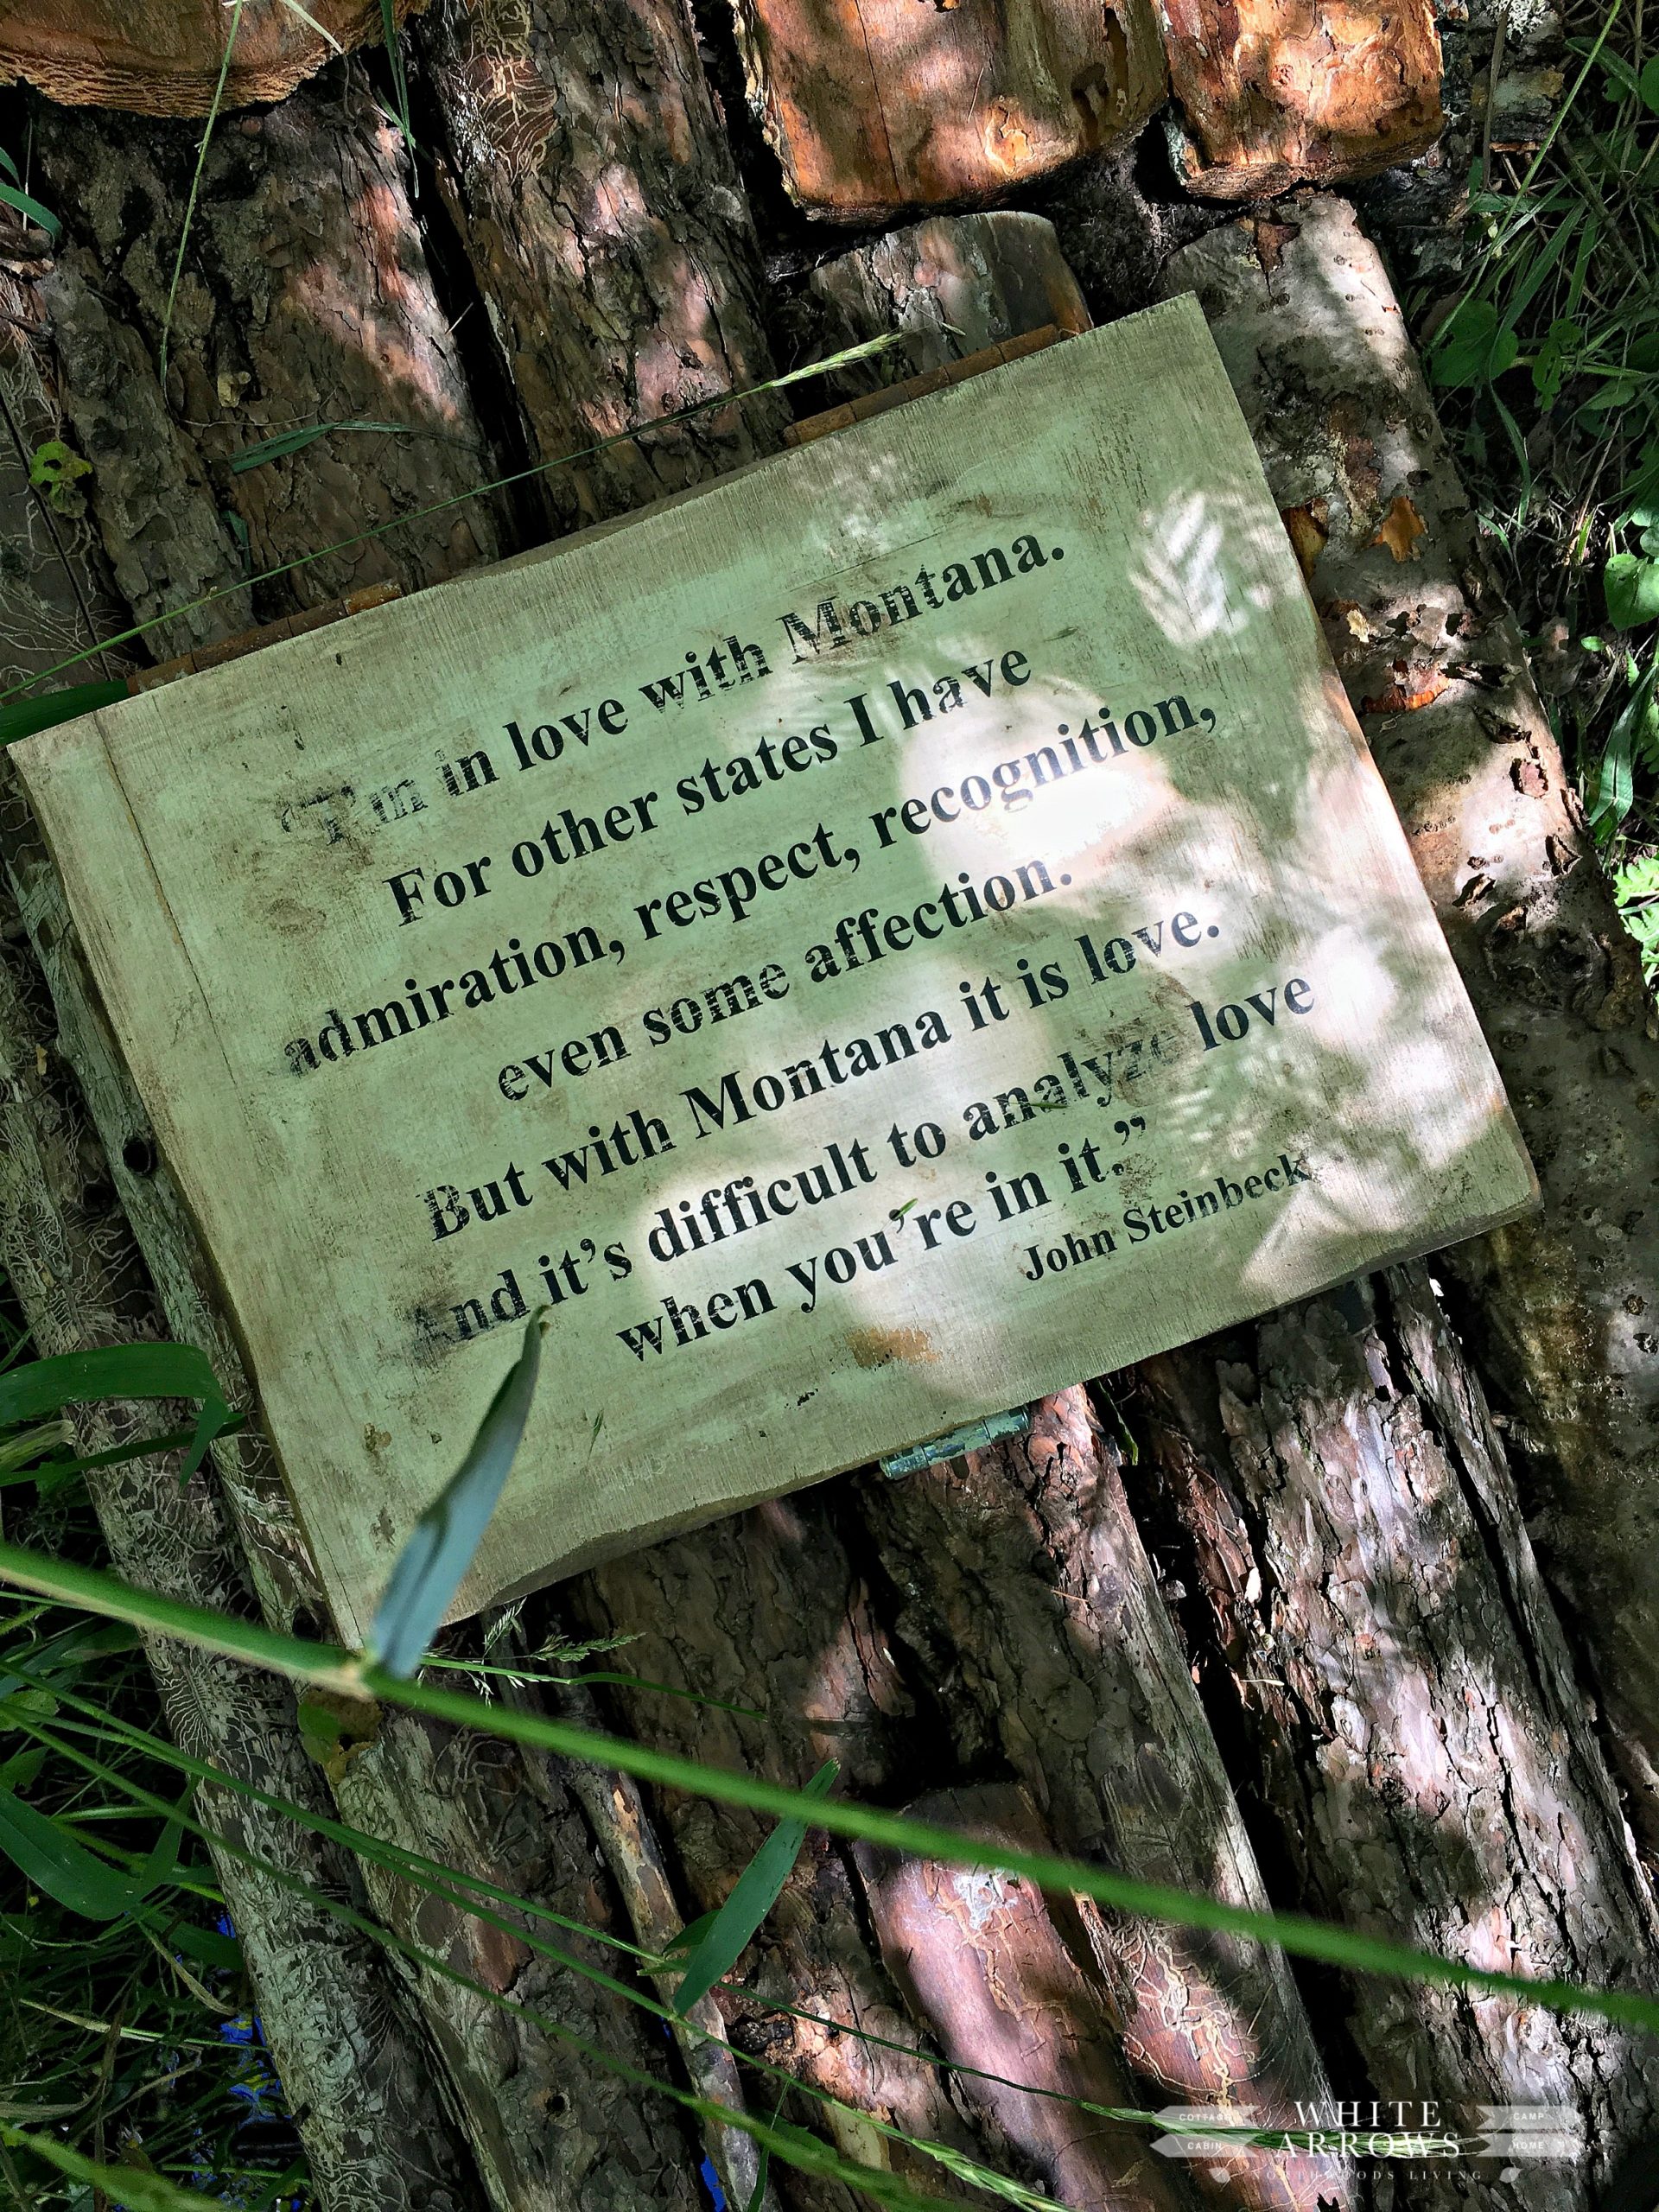 "I'm in love with Montana.
For other states I have
admiration, respect, recognition,
even some affection.
But with Montana it is love.
And it's difficult to analyze love
when you're in it."
John Steinbeck
COTTAGE CAMP
WHITE
CABIN HOME
ARROWS
NORTHWOODS LIVING